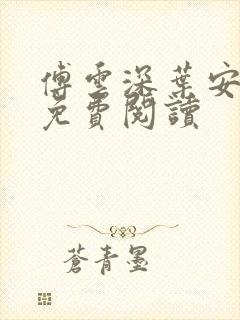 傅雲深葉安
免費閱讀
蒼青墨